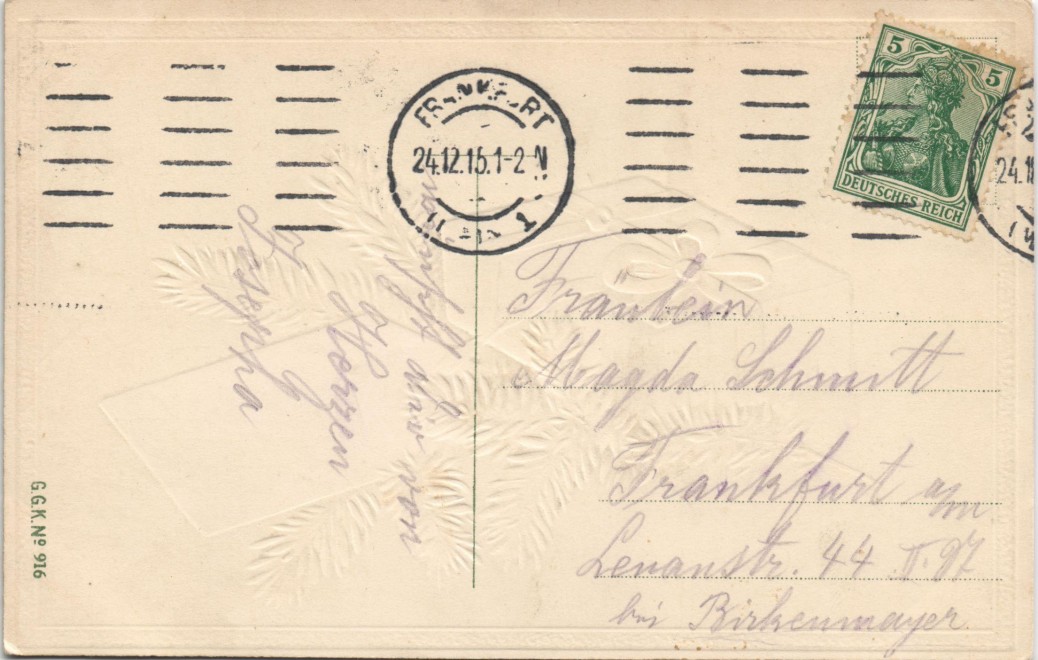 FRANKFURT
24.12.15.1-2 N
1
5
5
DEUTSCHES REICH
24.1
Fräulein
Magda Schmitt
Frankfurt am
44 II.
bei Birkenmayer
wünscht dir von
Herzen
Josepha
G.G.K.Nº 916